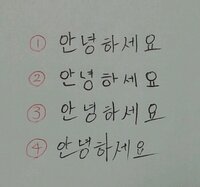 ① 안녕하세요
② 안녕하세요
③ 안녕하세요
④ 안녕하세요